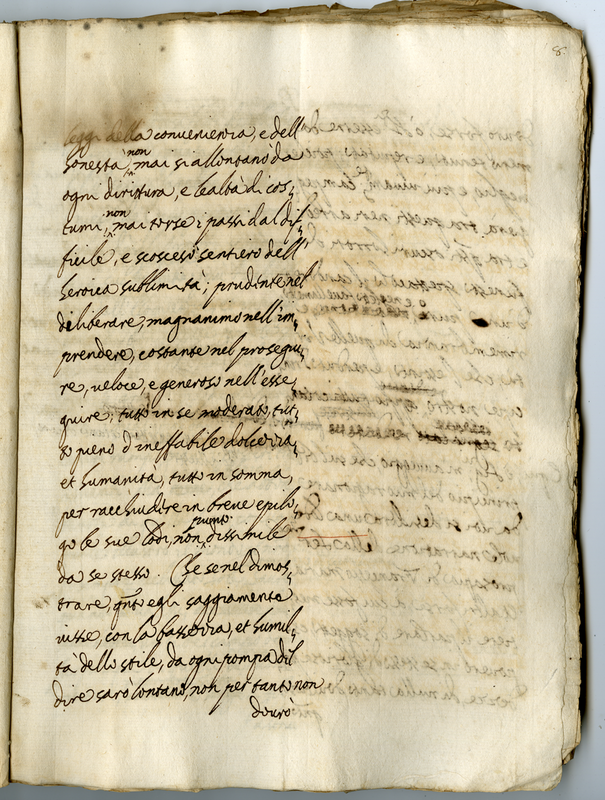 8.
leggi della convenienza, e dell'
honestà, non mai si allontanò da
ogni dirittura, e lealtà di cos=
tumi, non mai torse i passi dal dif=
ficile, e scosceso sentiero dell'
heroica sublimità; prudente nel
deliberare, magnanimo nell'im=
prendere, costante nel prosegui=
re, veloce, e generoso nell'esse=
quire; tutto in se moderato, tut=
to pieno d'ineffabile dolcezza,
et humanità, tutto in somma,
per racchiudire in breve epilo=
go le sue lodi, non punto dissimile
da se stesso. Che se nel dimos=
trare, qnto egli saggiamente
visse, con la bassezza, et humil=
tà dello stile, da ogni pompa di
dire sarò lontano, non per tanto non
dovrò